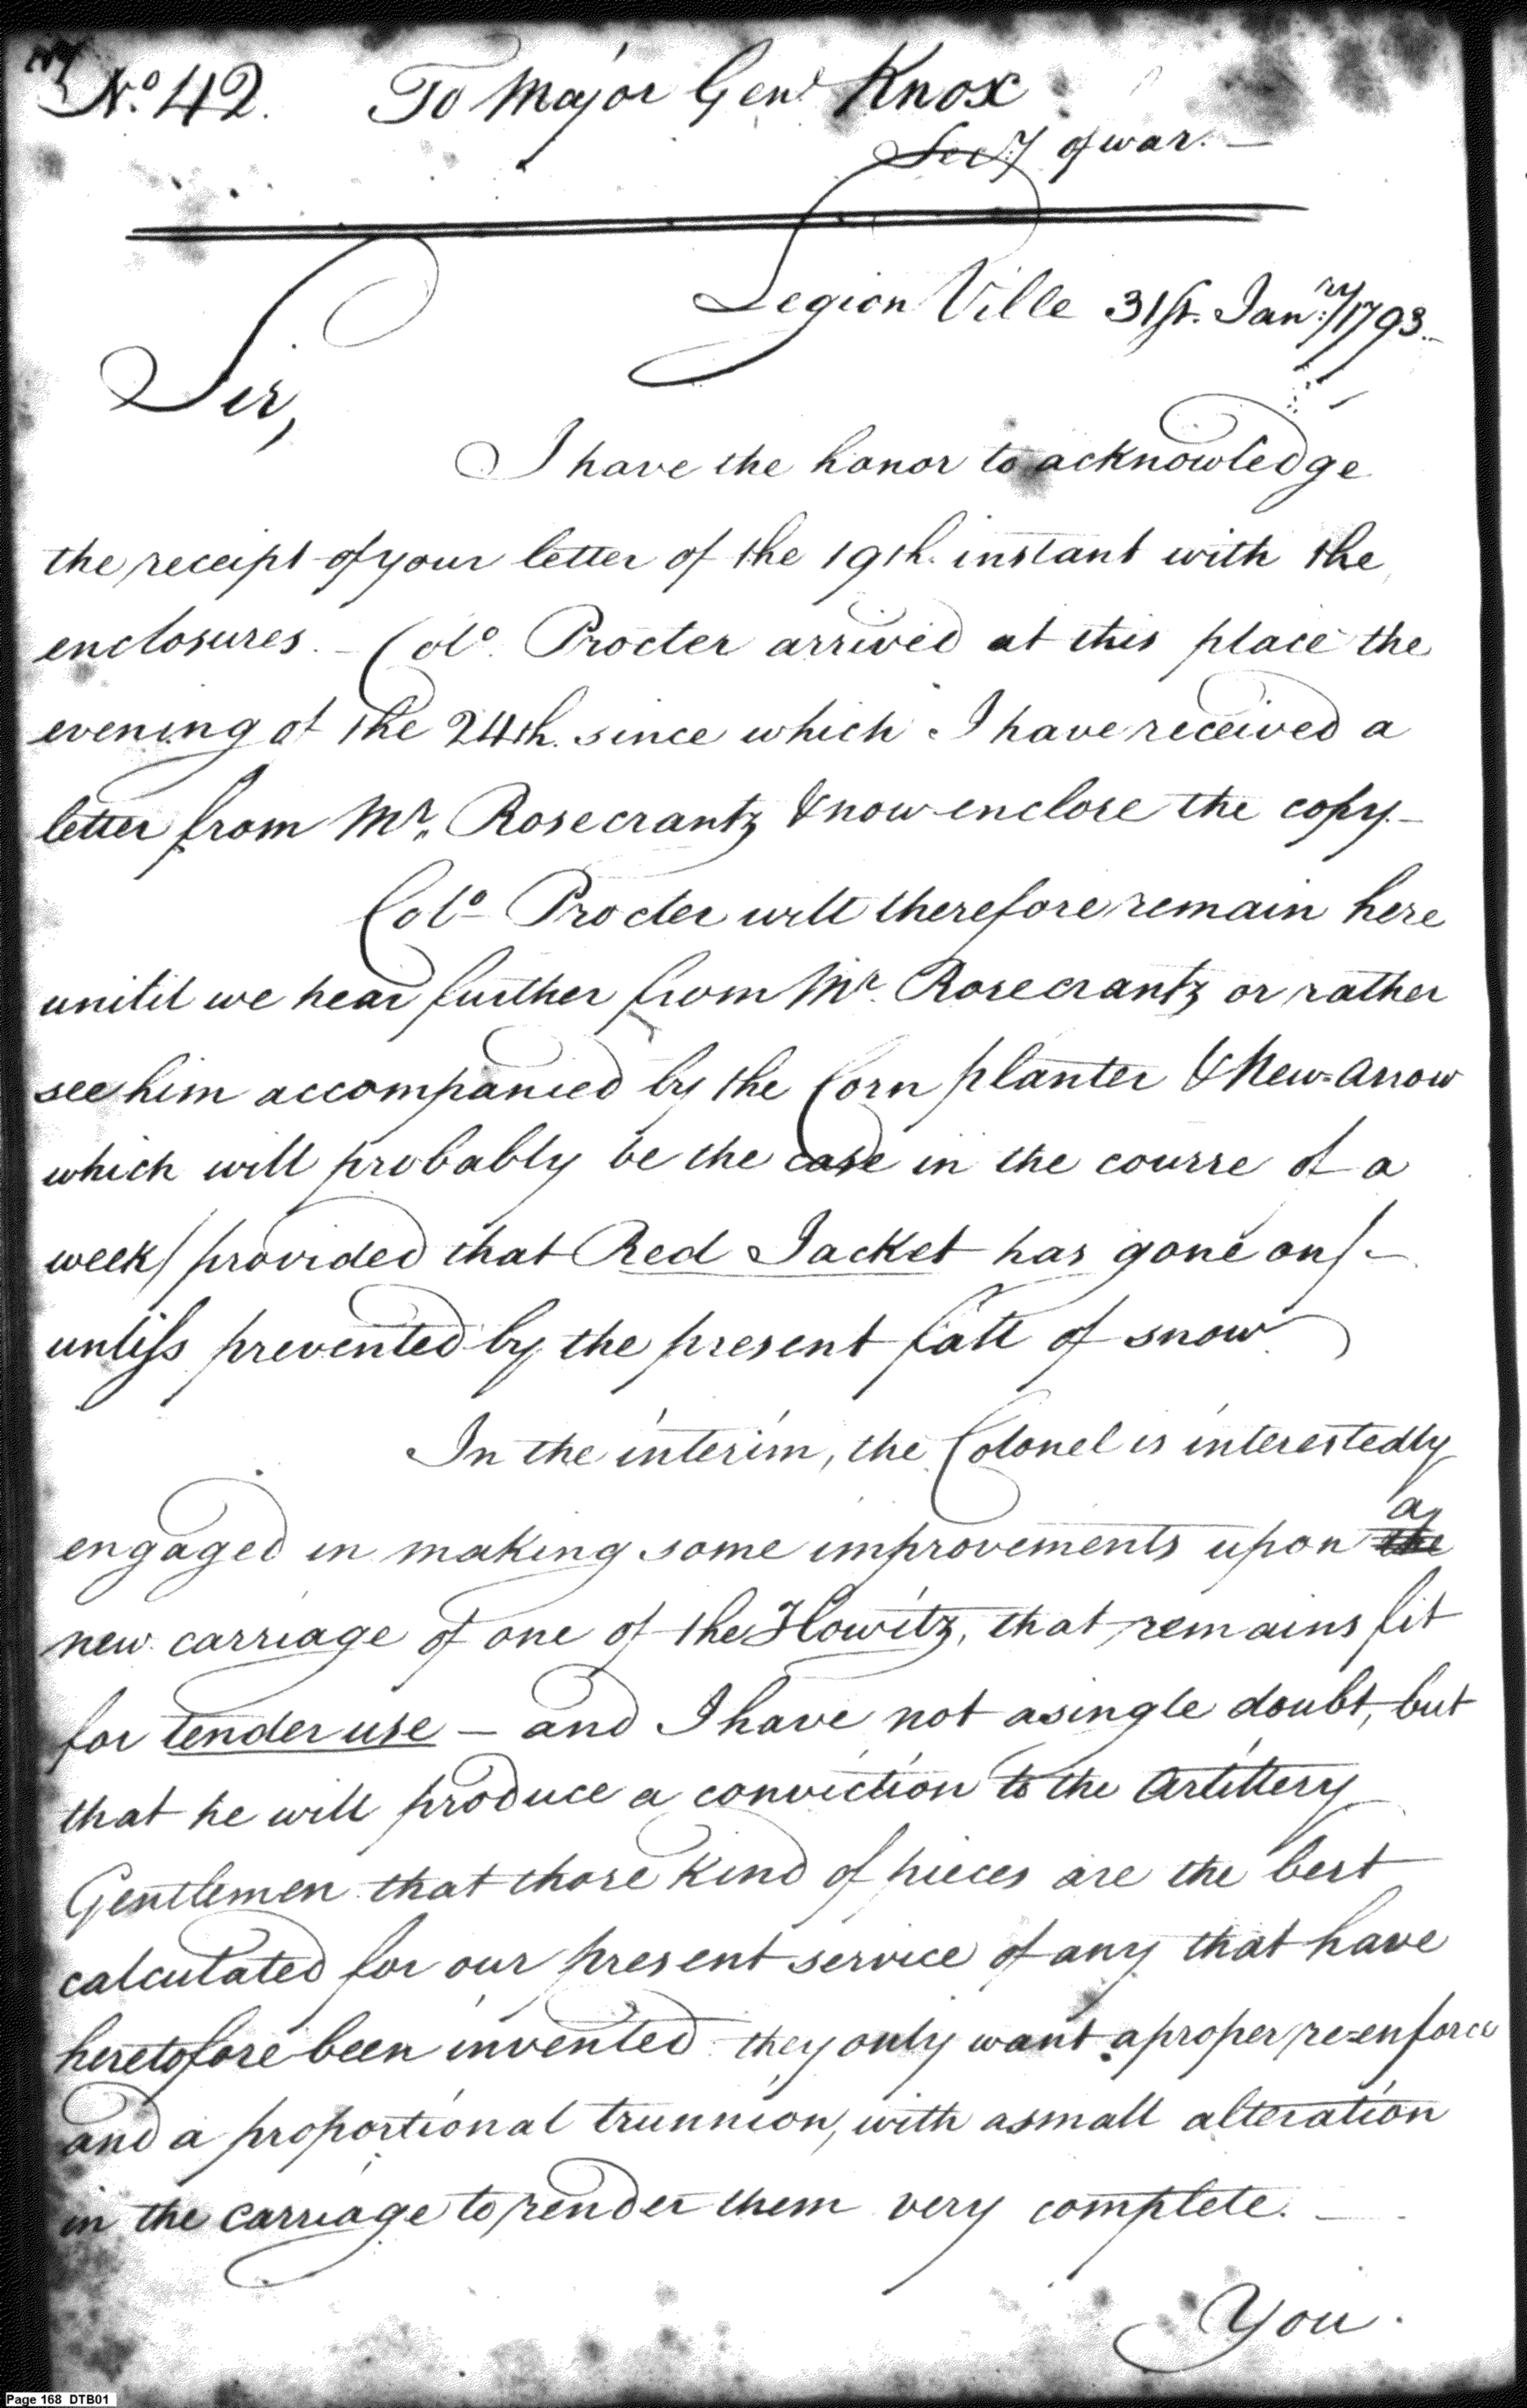 No. 42. To Major Genl. Knox
Secy of war. —
Legion Ville 31st. Jany. 1793.
Sir,
I have the honor to acknowledge
the receipt of your letter of the 19th. instant with the
enclosures. — Colo. Procter arrived at this place the
evening of the 24th. since which I have received a
letter from Mr. Rosecrantz & now enclose the copy. —
Colo. Procter will therefore remain here
unitil we hear further from Mr. Rosecrantz or rather
see him accompanied by the Corn planter & New=arrow
which will probably be the case in the course of a
week/ provided that Red Jacket has gone on/ —
unless prevented by the present fall of snow
In the interim, the Colonel is interestedly
engaged in making some improvements upon the a
new carriage of one of the Howitz, that remains fit
for tender use — and I have not a single doubt, but
that he will produce a conviction to the Artillery
Gentlemen that those kind of pieces are the best
calculated for our present service of any that have
heretofore been invented they only want a proper re=enforce
and a proportional trunnion, with a small alteration
in the carriage to render them very complete. —
You.
Page 168 DTB01